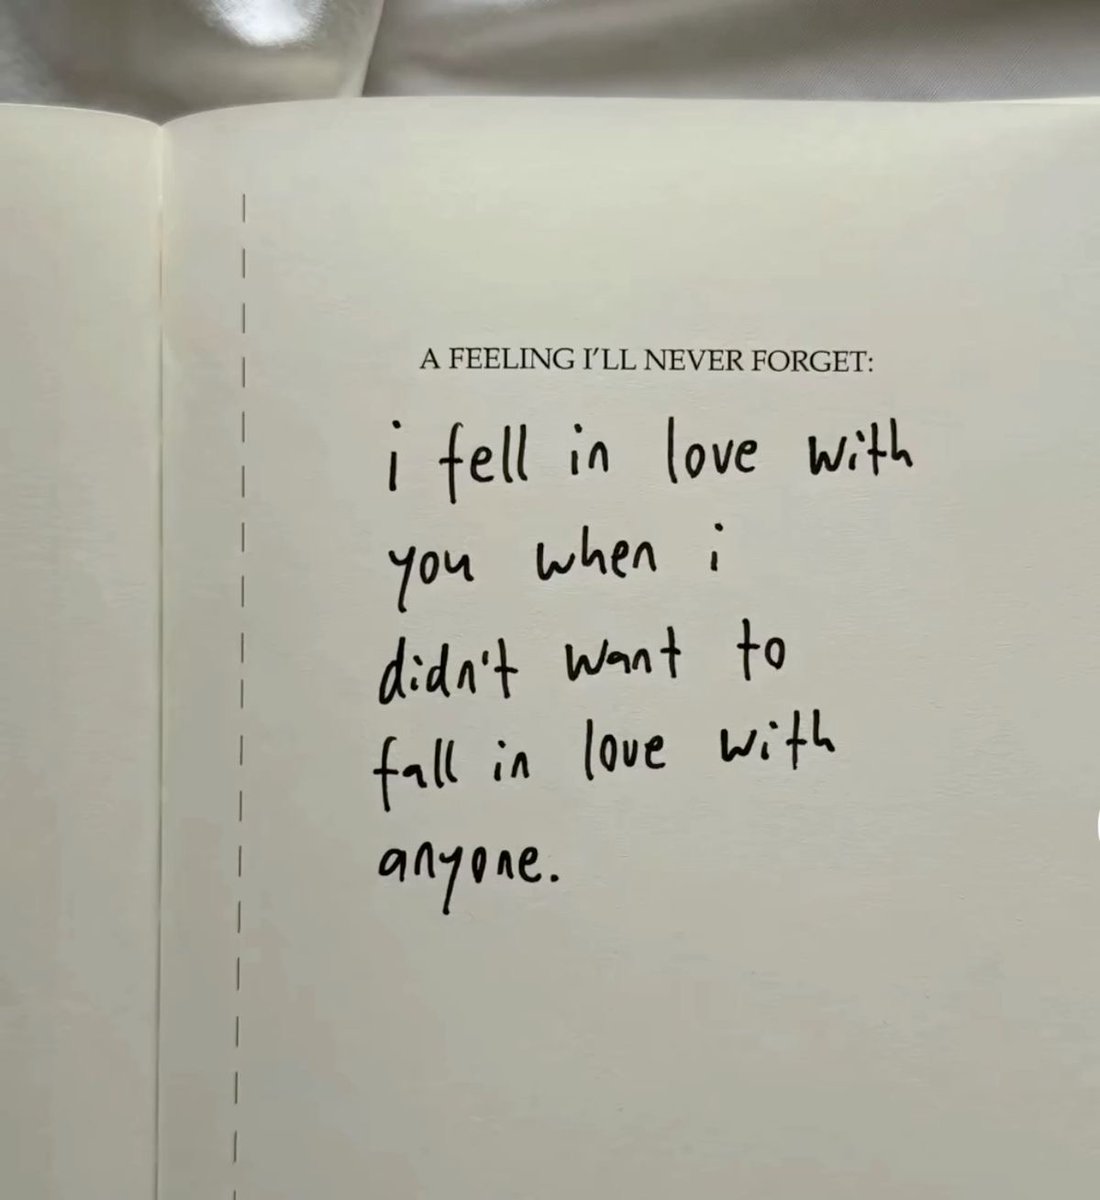 A FEELING I'LL NEVER FORGET:
i fell in love with
you when i
didn't want to
fall in love with
anyone.